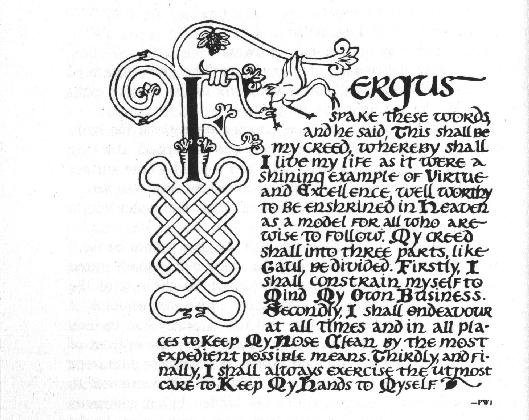 Fergus
spake these words,
and he said, This shall be
my creed, whereby shall
I live my life as it were a
shining example of Virtue
and Excellence, well worthy
to be enshrined in Heaven
as a model for all who are
wise to follow. My creed
shall into three parts, like
Gaul, be divided. Firstly, I
shall constrain myself to
Mind My Own Business.
Secondly, I shall endeavour
at all times and in all pla-
ces to Keep My Nose Clean by the most
expedient possible means. Thirdly, and fi-
nally, I shall always exercise the utmost
care to Keep My Hands to Myself.